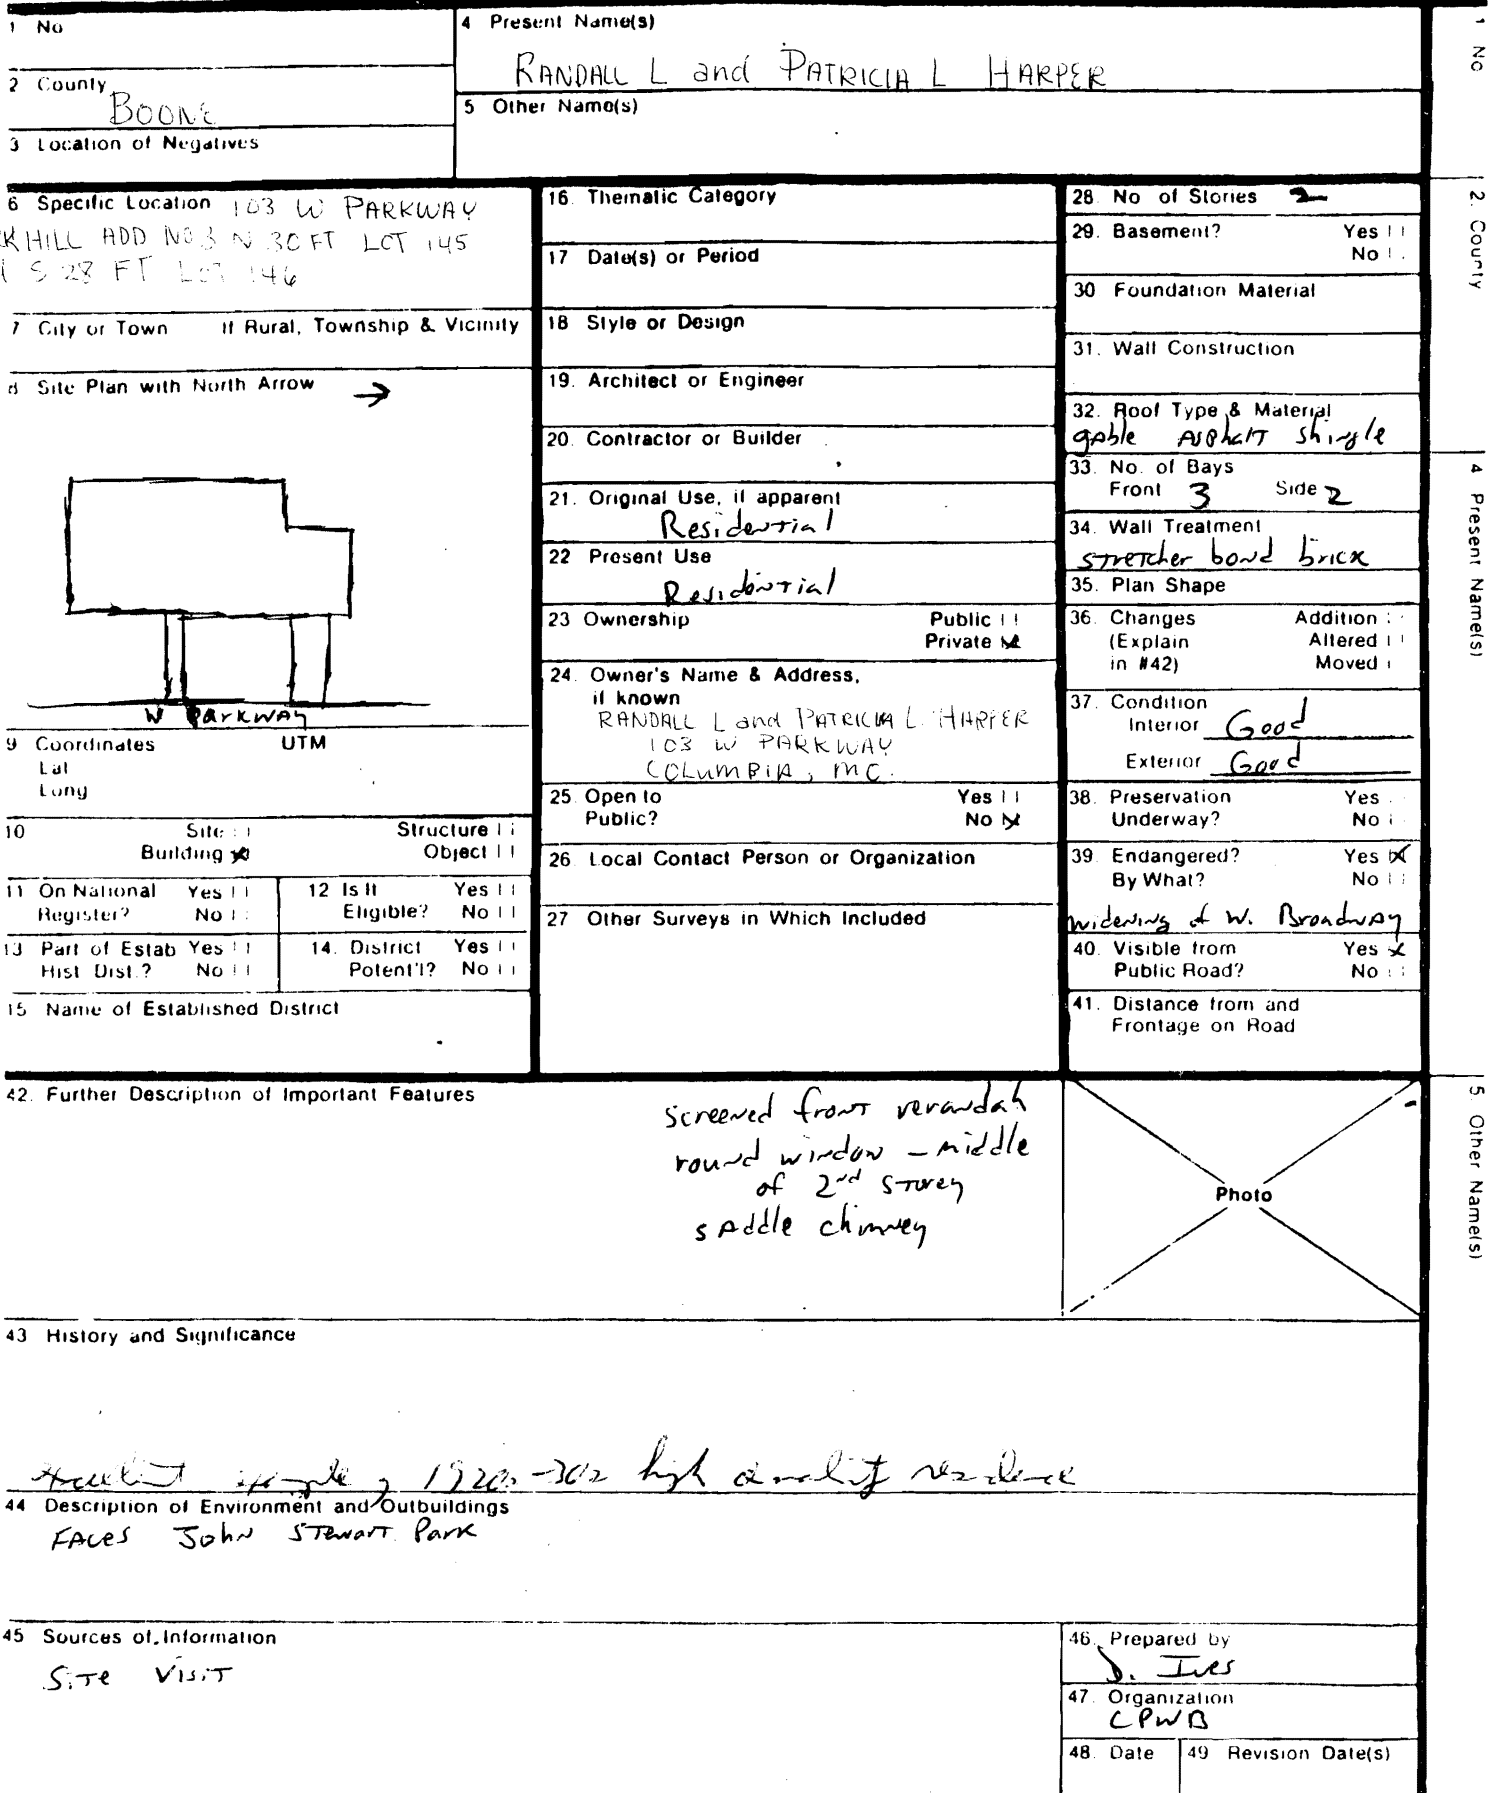 1 No
4 Present Name(s)
RANDALL L and PATRICIA L HARPER
2 County
BOONE
5 Other Name(s)
3 Location of Negatives
6 Specific Location 103 W PARKWAY
KHILL ADD NO 3 N 30 FT LOT 145
S 28 FT LOT 146
7 City or Town If Rural, Township & Vicinity
8 Site Plan with North Arrow
W Parkway
9 Coordinates UTM
Lat
Long
10 Site Structure
Building Object
11 On National Register? Yes No
12 Is It Eligible? Yes No
13 Part of Estab Hist Dist.? Yes No
14. District Potent'l? Yes No
15 Name of Established District
16. Thematic Category
17 Date(s) or Period
18 Style or Design
19. Architect or Engineer
20. Contractor or Builder
21. Original Use, if apparent
Residential
22 Present Use
Residential
23 Ownership Public
Private
24. Owner's Name & Address,
if known
RANDALL L and PATRICIA L. HARPER
103 W PARKWAY
COLUMBIA, MO.
25. Open to Yes
Public? No
26. Local Contact Person or Organization
27 Other Surveys in Which Included
28. No of Stories 2
29. Basement? Yes
No
30 Foundation Material
31. Wall Construction
32. Roof Type & Material
gable Asphalt shingle
33. No. of Bays
Front 3 Side 2
34. Wall Treatment
stretcher bond brick
35. Plan Shape
36. Changes Addition
(Explain Altered
in #42) Moved
37. Condition
Interior Good
Exterior Good
38. Preservation Yes
Underway? No
39. Endangered? Yes
By What? No
widening of W. Broadway
40. Visible from Yes
Public Road? No
41. Distance from and
Frontage on Road
42. Further Description of Important Features
screened front verandah
round window - middle
of 2nd storey
saddle chimney
Photo
43 History and Significance
Excellent example of 1920s-30s high quality residence
44 Description of Environment and Outbuildings
Faces John Stewart Park
45 Sources of Information
Site Visit
46. Prepared by
D. Ives
47. Organization
CPWB
48. Date
49 Revision Date(s)
1 No
2. County
4 Present Name(s)
5. Other Name(s)